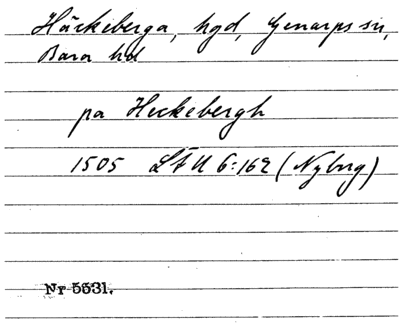 Häckeberga, hgd, Genarps sn,
Bara hd
pa Heckebergh
1505 LFU 6:162 (Nyberg)
Nr 5531.